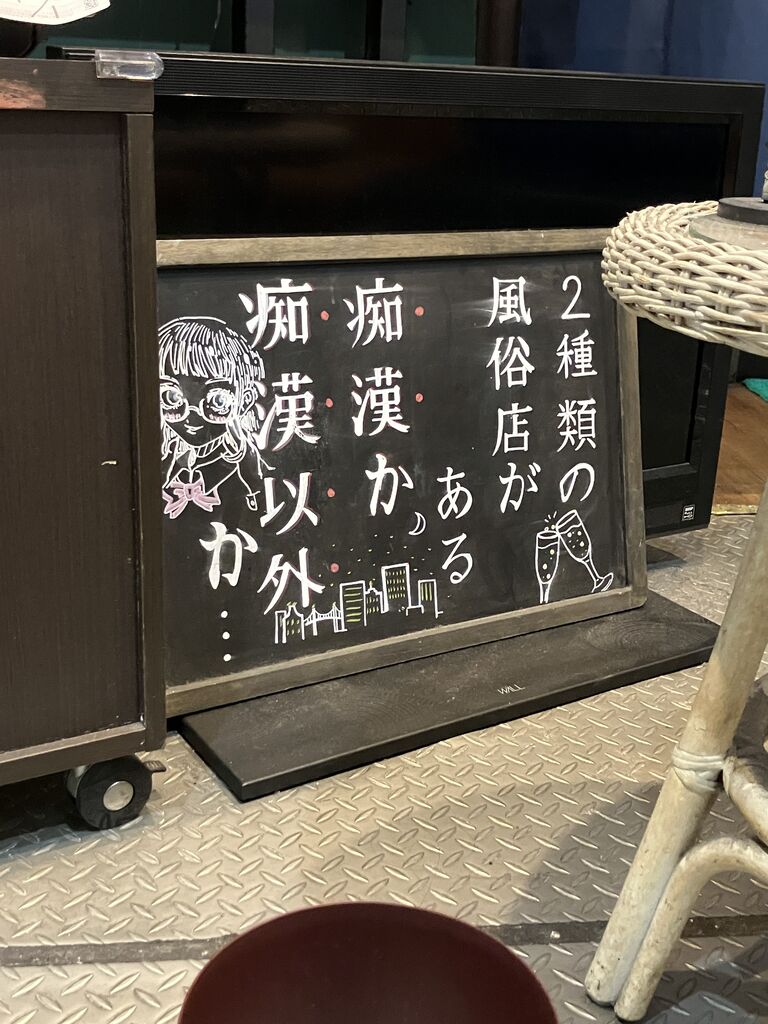 2種類の
風俗店が
ある
痴漢か、
痴漢以外
か…
WALL